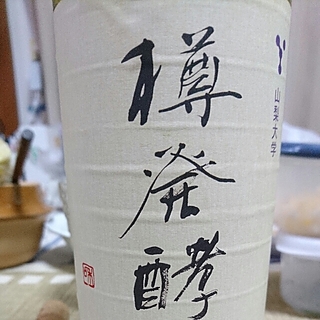 樽発酵
山梨大学